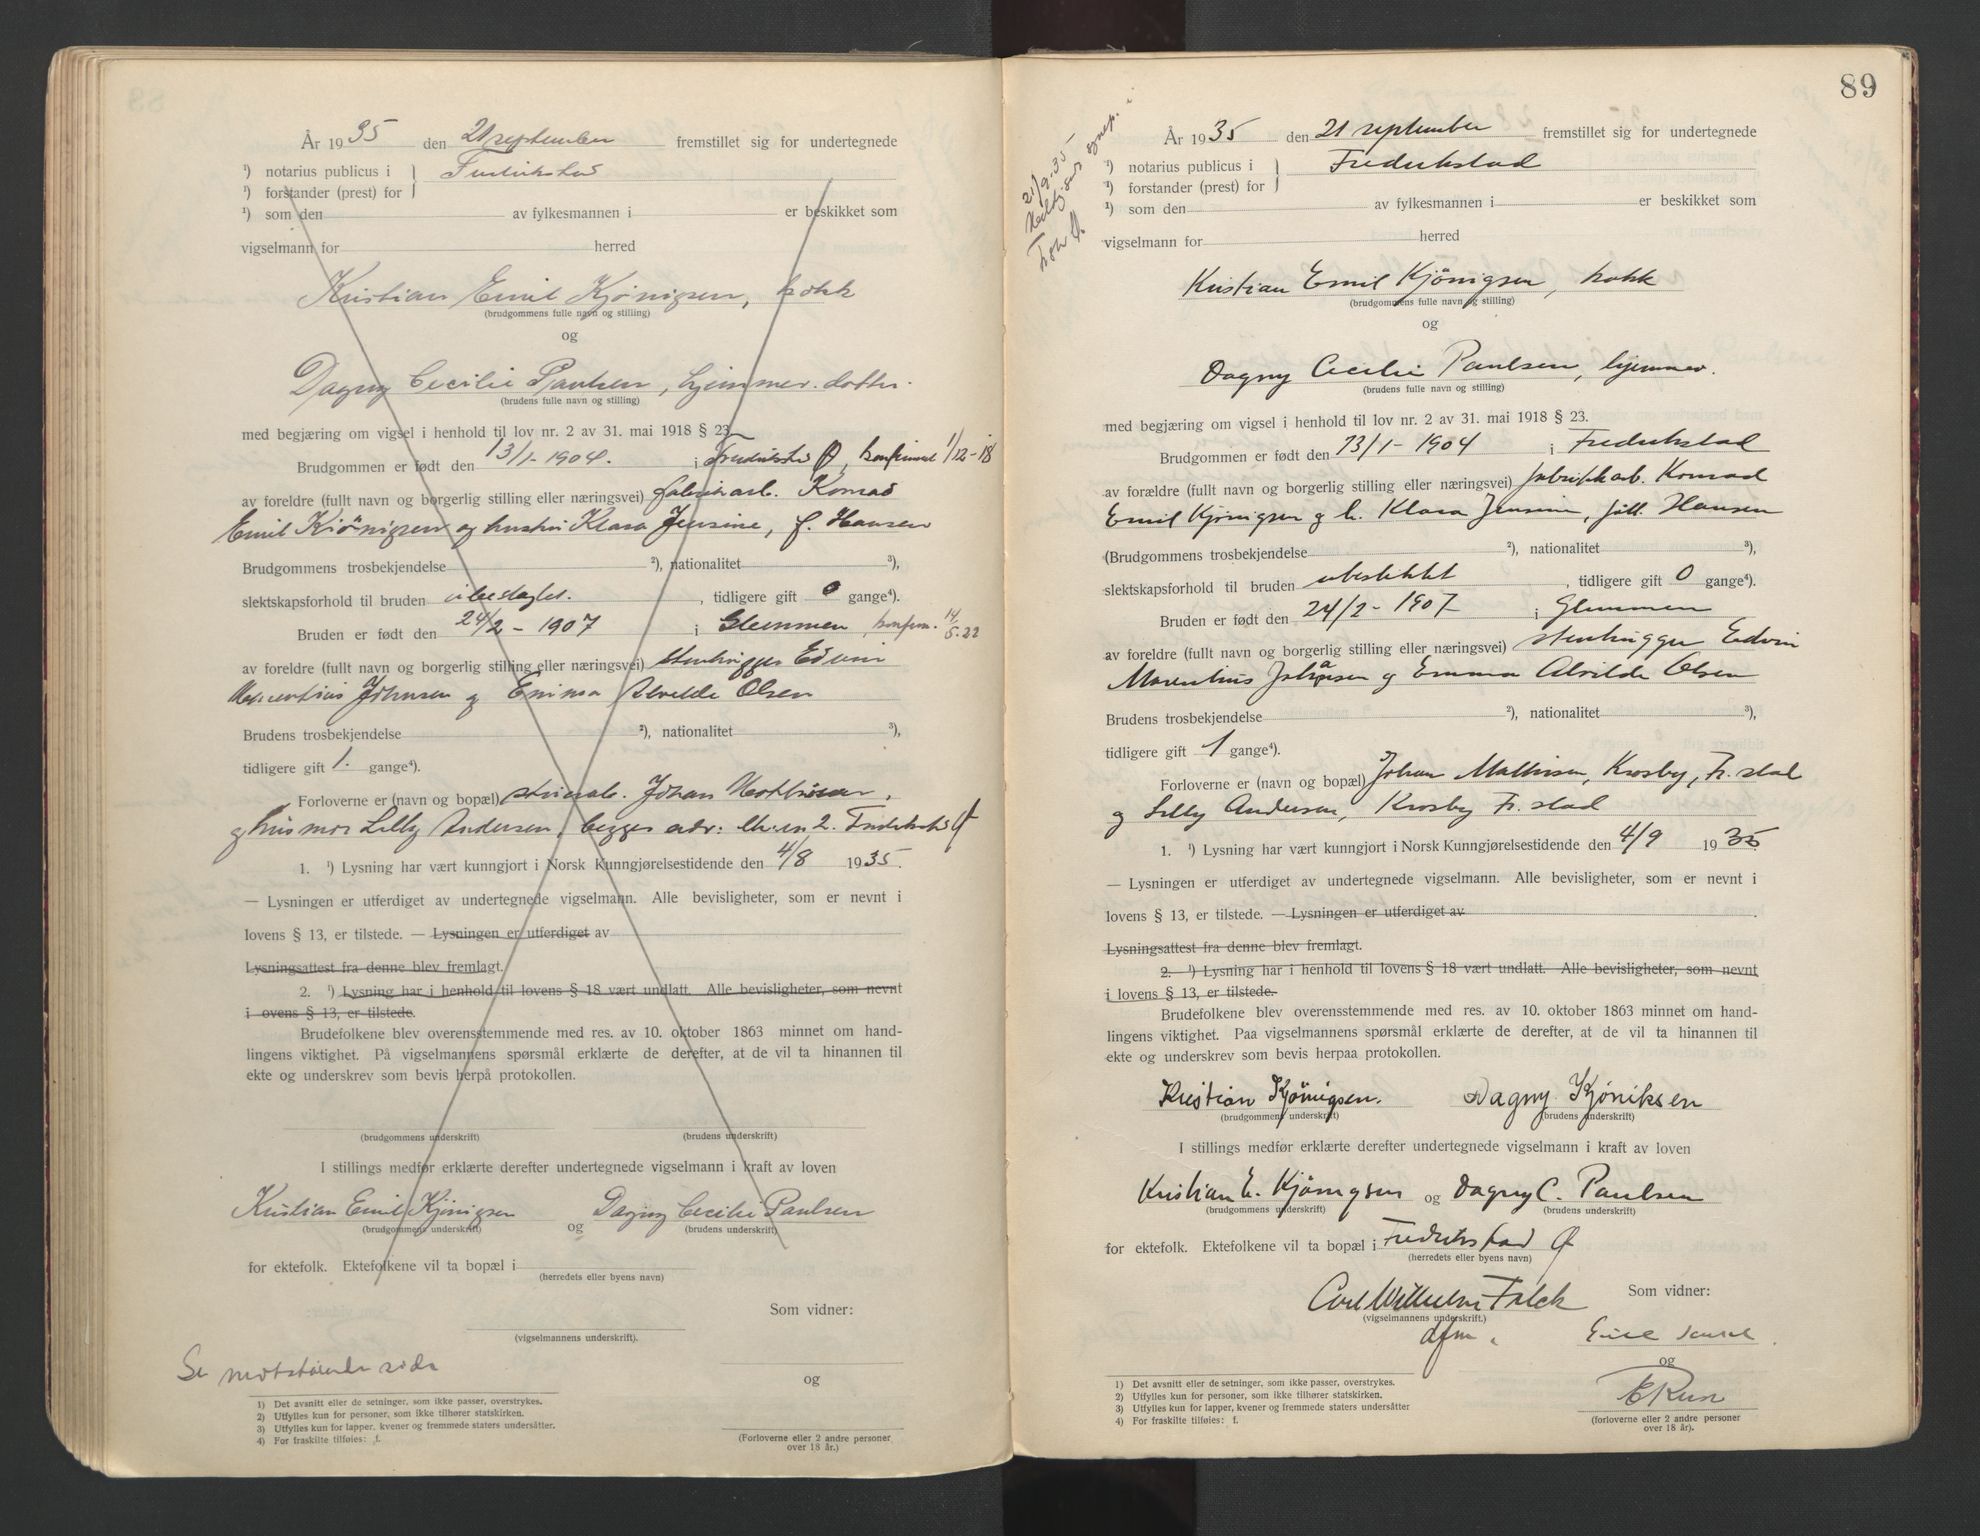 År 1935 den 21 september fremstillet sig for undertegnede
¹) notarius publicus i } Fredrikstad
¹) forstander (prest) for
¹) som den av fylkesmannen i er beskikket som
vigselmann for herred
Kristian Emil Kjønigsen, kokk
(brudgommens fulle navn og stilling)
og
Dagny Cecilie Paulsen, hjemmev. datter.
(brudens fulle navn og stilling)
med begjæring om vigsel i henhold til lov nr. 2 av 31. mai 1918 § 23.
Brudgommen er født den 13/1-1904. i Fredrikstad Ø, konfirmert 1/12-18
av foreldre (fullt navn og borgerlig stilling eller næringsvei) fabrikarb. Konrad
Emil Kjönigsen og hustru Klara Jensine, f. Hansen
Brudgommens trosbekjendelse ²), nationalitet ³),
slektskapsforhold til bruden ubeslægtet. , tidligere gift 0 gange⁴).
Bruden er født den 24/2 - 1907 i Glemmen, konfirm. 14/5.22
av foreldre (fullt navn og borgerlig stilling eller næringsvei) stenhugger Edvin
Marentius Johnsen og Emma Alvilde Olsen
Brudens trosbekjendelse ²), nationalitet ³),
tidligere gift 1. gange⁴).
Forloverne er (navn og bopæl) Johan Mathisen,
og husmor Lilly Andersen, begges adr: Fredrikstad
1. ¹) Lysning har vært kunngjort i Norsk Kunngjørelsestidende den 4/8 1935.
— Lysningen er utferdiget av undertegnede vigselmann. Alle bevisligheter, som er nevnt i
lovens § 13, er tilstede. — Lysningen er utferdiget av
Lysningsattest fra denne blev fremlagt.
2. ¹) Lysning har i henhold til lovens § 18 vært undlatt. Alle bevisligheter, som nevnt
i ovens § 13, er tilstede.
Brudefolkene blev overensstemmende med res. av 10. oktober 1863 minnet om hand-
lingens viktighet. På vigselmannens spørsmål erklærte de derefter, at de vil ta hinannen til
ekte og underskrev som bevis herpå protokollen.
(brudgommens underskrift) (brudens underskrift)
I stillings medfør erklærte derefter undertegnede vigselmann i kraft av loven
Kristian Emil Kjönigsen og Dagny Cecilie Paulsen
(brudgommens underskrift) (brudens underskrift)
for ektefolk. Ektefolkene vil ta bopæl i
(herredets eller byens navn)
Som vidner:
(vigselmannens underskrift).
Se motstående side
og
1) Det avsnitt eller de setninger, som ikke passer, overstrykes.
2) Utfylles kun for personer, som ikke tilhører statskirken.
3) Utfylles kun for lapper, kvener og fremmede staters undersåtter.
4) For fraskilte tilføies: f.
(Forloverne eller 2 andre personer
over 18 år.)
89
21/9.35
År 1935 den 21 september fremstillet sig for undertegnede
¹) notarius publicus i } Fredrikstad
¹) forstander (prest) for
¹) som den av fylkesmannen i er beskikket som
vigselmann for herred
Kristian Emil Kjönigsen, kokk
(brudgommens fulle navn og stilling)
og
Dagny Cecilie Paulsen, hjemmev.
(brudens fulle navn og stilling)
med begjæring om vigsel i henhold til lov nr. 2 av 31. mai 1918 § 23.
Brudgommen er født den 13/1-1904 i Fredrikstad
av forældre (fullt navn og borgerlig stilling eller næringsvei) fabrikkarb. Konrad
Emil Kjönigsen og h. Klara Jensine, født Hansen
(Brudgommens trosbekjendelse ²), nationalitet ³),
slektskapsforhold til bruden ubeslektet , tidligere gift 0 gange⁴).
Bruden er født den 24/2-1907 i Glemmen
av foreldre (fullt navn og borgerlig stilling eller næringsvei) stenhugger Edvin
Marentius Johansen og Emma Alvilde Olsen
Brudens trosbekjendelse ²), nationalitet ³),
tidligere gift 1 gange⁴).
Forloverne er (navn og bopæl) Johan Mathisen, Krosby, Fr.stad
og Lilly Andersen, Krosby Fr.stad
1. ¹) Lysning har vært kunngjort i Norsk Kunngjørelsestidende den 4/9 1935
— Lysningen er utferdiget av undertegnede vigselmann. Alle bevisligheter, som er nevnt i
lovens § 13, er tilstede. — Lysningen er utferdiget av
Lysningsattest fra denne blev fremlagt.
2. ¹) Lysning har i henhold til lovens § 18 vært undlatt. Alle bevisligheter, som nevnt
i lovens § 13, er tilstede.
Brudefolkene blev overensstemmende med res. av 10. oktober 1863 minnet om hand-
lingens viktighet. Paa vigselmannens spørsmål erklærte de derefter, at de vil ta hinannen til
ekte og underskrev som bevis herpaa protokollen.
Kristian Kjönigsen. Dagny Kjøniksen
(brudgommens underskrift) (brudens underskrift)
I stillings medfør erklærte derefter undertegnede vigselmann i kraft av loven
Kristian E. Kjönigsen og Dagny C. Paulsen
(brudgommens underskrift) (brudens underskrift)
for ektefolk. Ektefolkene vil ta bopæl i Fredrikstad Ø
(herredets eller byens navn)
Carl Wilhelm Falck Som vidner:
(vigselmannens underskrift.)
dfm.
og
1) Det avsnitt eller de setninger, som ikke passer, overstrykes.
2) Utfylles kun for personer, som ikke tilhører statskirken.
3) Utfylles kun for lapper, kvener og fremmede staters undersåtter
4) For fraskilte tilføies: f.
(forloverne eller 2 andre personer
over 18 år).